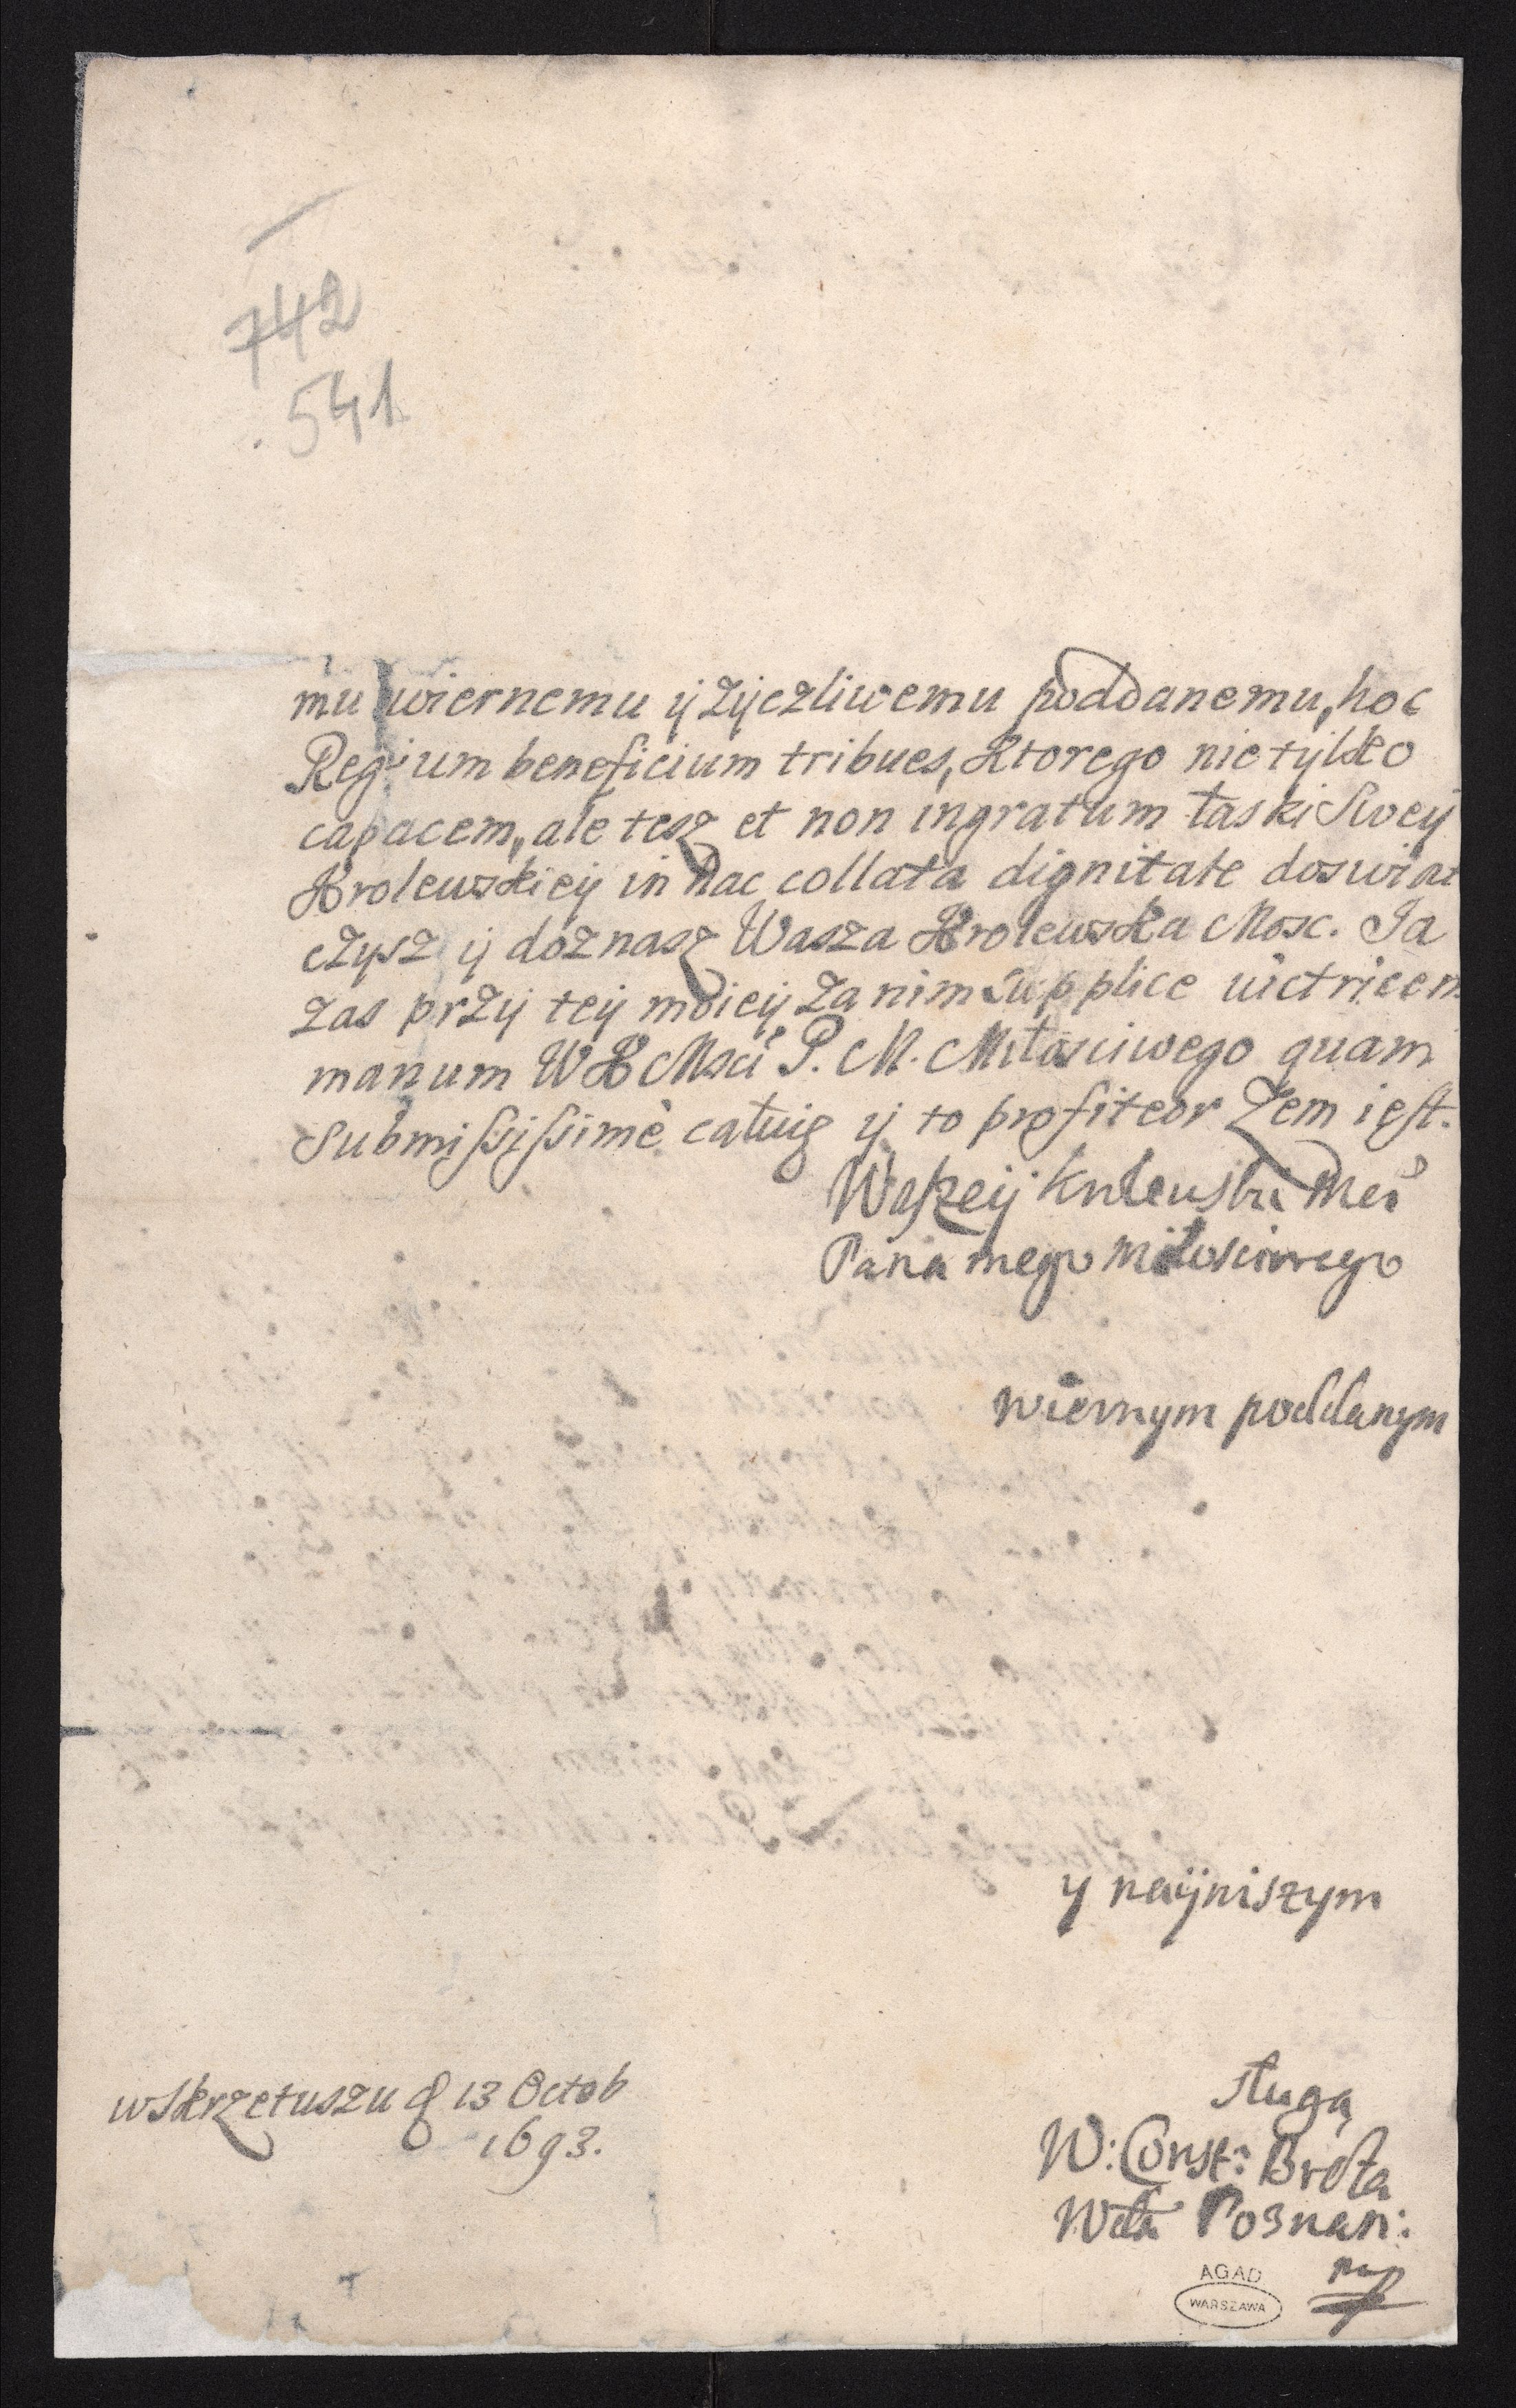 742
541
mu wiernemu ÿ zÿczliwemu poddanemu, hoc
Regium beneficium tribues, ktorego nietÿlko
capacem, ale tesz et non ingratum łaski Swey
Krolewskieÿ in hac collata dignitate doswiat
czysz ÿ doznasz Wasza Krolewska Mosc. Ja
zas przÿ teÿ moieÿ za nim supplice uictricem
manum WKMsci P. M. Miłosciwego quam
Submissississime całuię ÿ to profiteor Zem iest.
Waszeÿ Krolewski Mci
Pana mego Miłosciwego
wiernym poddanym
y naÿniszym
sługą
w Skrzetuszu d 13 Octob
1693.
W: Const: Breza
Wda Poznan:
mp
AGAD
WARSZAWA